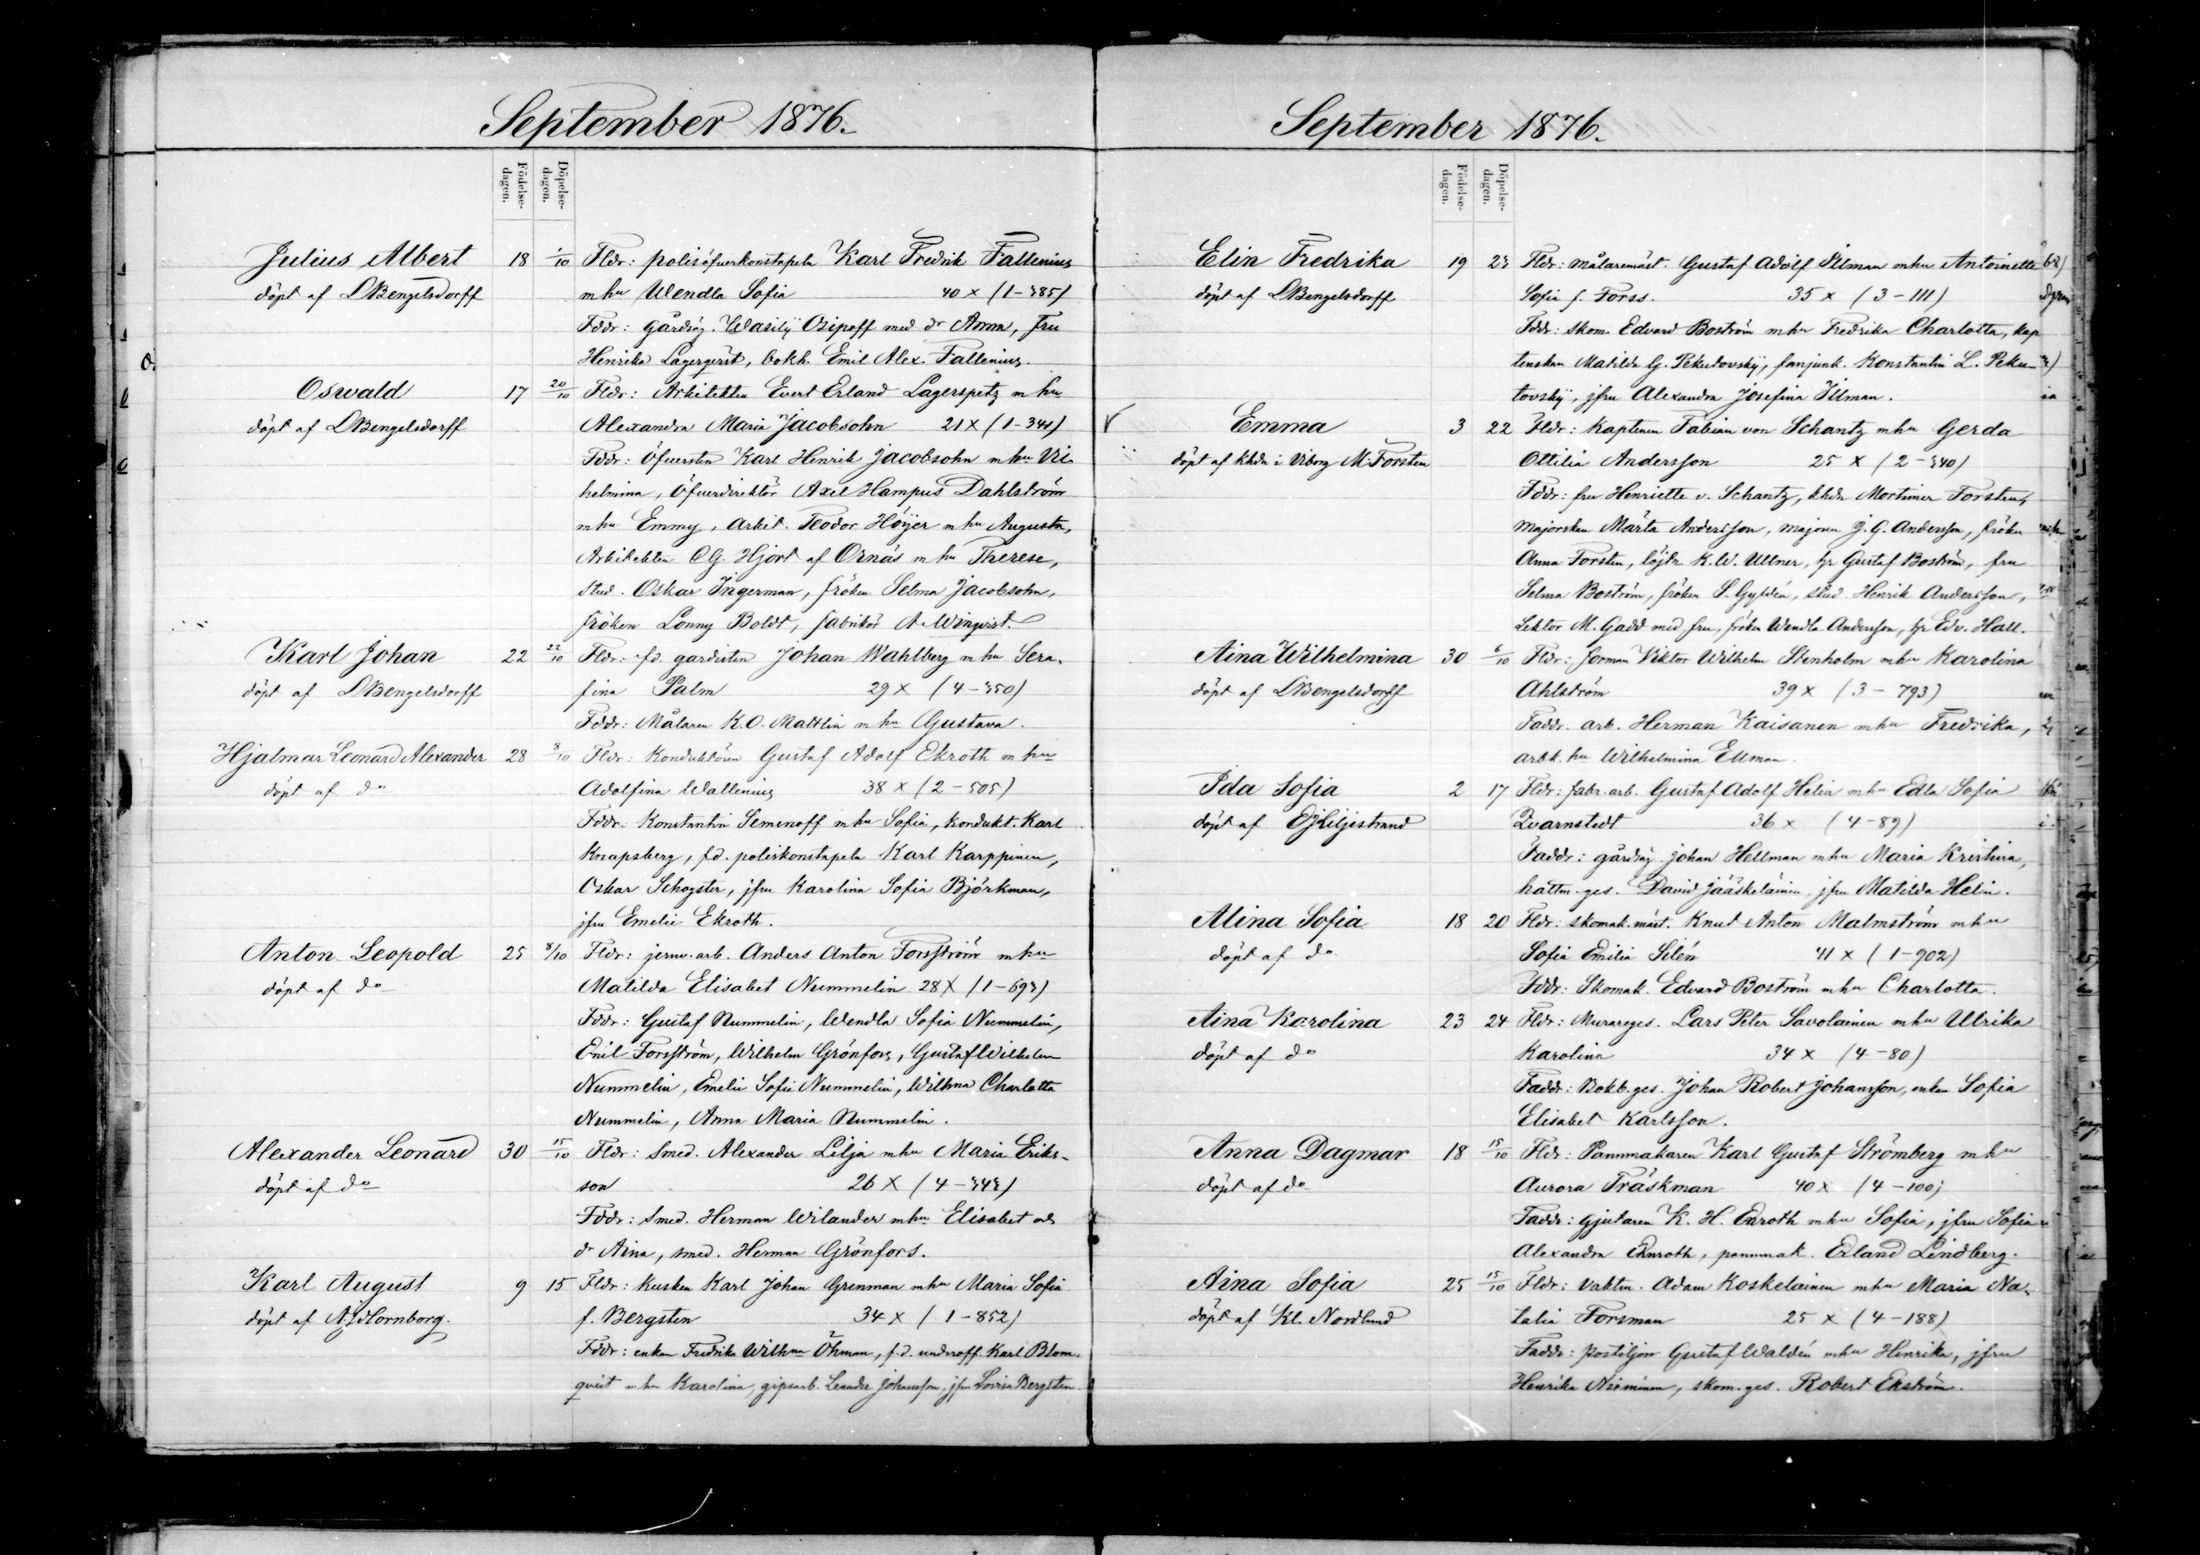 September 1876.
Födelse-dagen.
Döpelse-dagen.
Julius Albert 18 1/10 Fldr: polisöfverkonstapeln Karl Fredrik Fallenius
döpt af LBengelsdorff m hu Wendla Sofia 40 x (1-385)
Fddr: gårdsäg. Wasilij Osipoff med dr Anna, fru
Henrika Lagergrist, bokh. Emil Alex. Fallenius.
Oswald 17 20/10 Fldr: Arkitekten Evert Erland Lagerspetz m hu
döpt af LBengelsdorff Alexandra Maria Jacobsohn 21 x (1-341)
Fddr: Öfversten Karl Henrik Jacobsohn m hu Vil-
helmina, Öfverdirektör Axel Hampus Dahlström
m hu Emmy, Arkit. Teodor Höijer m hu Augusta,
Arkitekten CG. Hjort af Ornäs m hu Therese,
stud. Oskar Ingerman, fröken Selma Jacobsohn,
fröken Lonny Boldt, fabrikör A. Winqvist.
Karl Johan 22 22/10 Fldr: fd. gardisten Johan Wahlberg m hu Sera-
döpt af LBengelsdorff fina Palm 29 x (4-350)
Fddr: Målaren K.O. Mattlin m hu Gustava.
Hjalmar Leonard Alexander 28 8/10 Fldr: Konduktören Gustaf Adolf Ekroth m hu
döpt af do Adolfina Wallenius 38 x (2-505)
Fddr: Konstantin Semenoff m hu Sofia, kondukt. Karl
Knapsberg, f.d. poliskonstapeln Karl Karppinen,
Oskar Schogster, jfru Karolina Sofia Björkman,
jfru Emelie Ekroth.
Anton Leopold 25 8/10 Fldr: jernv. arb. Anders Anton Forsström m hu
döpt af do Matilda Elisabet Nummelin 28 x (1-693)
Fddr: Gustaf Nummelin, Wendla Sofia Nummelin,
Emil Forsström, Wilhelm Grönfors, Gustaf Wilhelm
Nummelin, Emelie Sofie Nummelin, Wilhma Charlotta
Nummelin, Anna Maria Nummelin.
Alexander Leonard 30 15/10 Fldr: Smed. Alexander Lilja m hu Maria Eriks-
döpt af do son 26 x (4-343)
Fddr: Smed. Herman Wilander m hu Elisabet och
dr Aina, smed. Herman Grönfors.
Karl August 9 15 Fldr: Kusken Karl Johan Grenman m hu Maria Sofia
döpt af AHornborg. f. Bergsten 34 x (1-852)
Fddr: enkan Fredrika Wilhma Öhman, f.d. underoff. Karl Blom-
qvist m hu Karolina, gipsarb. Leander Johansson, jfru Lovisa Bergsten.
September 1876.
Födelse-dagen.
Döpelse-dagen.
Elin Fredrika 19 23 Fldr: målaremäst. Gustaf Adolf Illman m hu Antoinette
döpt af LBengelsdorff Sofia f. Forss. 35 x (3-111)
Fddr: skom. Edvard Boström m hu Fredrika Charlotta, kap
tenskan Matilda G. Pekutovsky, fanjunk. Konstantin L. Peku-
tovsky, jfru Alexandra Josefina Illman.
Emma 3 22 Fldr: Kaptenen Fabian von Schantz m hu Gerda
döpt af khdn i Viborg M. Forstén Ottilia Andersson 25 x (2-340)
Fddr: fru Henriette v. Schantz, khdn Mortimer Forsten,
majorskan Märta Andersson, majoren J. G. Andersson, fröken
Anna Forsten, löjtn. K.W. Ullner, hr Gustaf Boström, fru
Selma Boström, fröken S. Gyldén, stud. Henrik Andersson,
Lektor M. Gadd med fru, fröken Wendla Andersson, hr Edv. Hall.
Aina Wilhelmina 30 6/10 Fldr: forman Viktor Wilhelm Stenholm m hu Karolina
döpt af LBengelsdorff Ahlström 39 x (3-793)
Faddr. arb. Herman Kaisanen m hu Fredrika,
arbk. hu Wilhelmina Ellman
Ida Sofia 2 17 Fldr: fabr. arb. Gustaf Adolf Helin m hu Edla Sofia
döpt af OJLiljestrand Qvarnstedt 36 x (4-89)
Faddr: gårdsäg. Johan Hellman m hu Maria Kristina,
hattm. ges. David Jääskeläinen, jfru Matilda Helin.
Alina Sofia 18 20 Fldr: skomak. mäst. Knut Anton Malmström m hu
döpt af do Sofia Emilia Silén 41 x (1-902)
Fddr: Skomak. Edvard Boström m hu Charlotta.
Aina Karolina 23 24 Fldr: Murareges. Lars Peter Savolainen m hu Ulrika
döpt af do Karolina 34 x (4-80)
Faddr: Bokb. ges. Johan Robert Johansson, enkan Sofia
Elisabet Karlsson.
Anna Dagmar 18 15/10 Fldr: Pannmakaren Karl Gustaf Strömberg m hu
döpt af do Aurora Träskman 40 x (4-100)
Faddr: gjutaren K. H. Enroth m hu Sofia, jfru Sofia
Alexandra Enroth, pannmak. Erland Lindberg.
Aina Sofia 25 15/10 Fldr: vaktm. Adam Koskelainen m hu Maria Na-
döpt af Kl. Nordlund talia Forsman 25 x (4-188)
Faddr: postiljon Gustaf Waldén m hu Henrika, jfru
Henrika Nieminen, skom. ges. Robert Ekström.